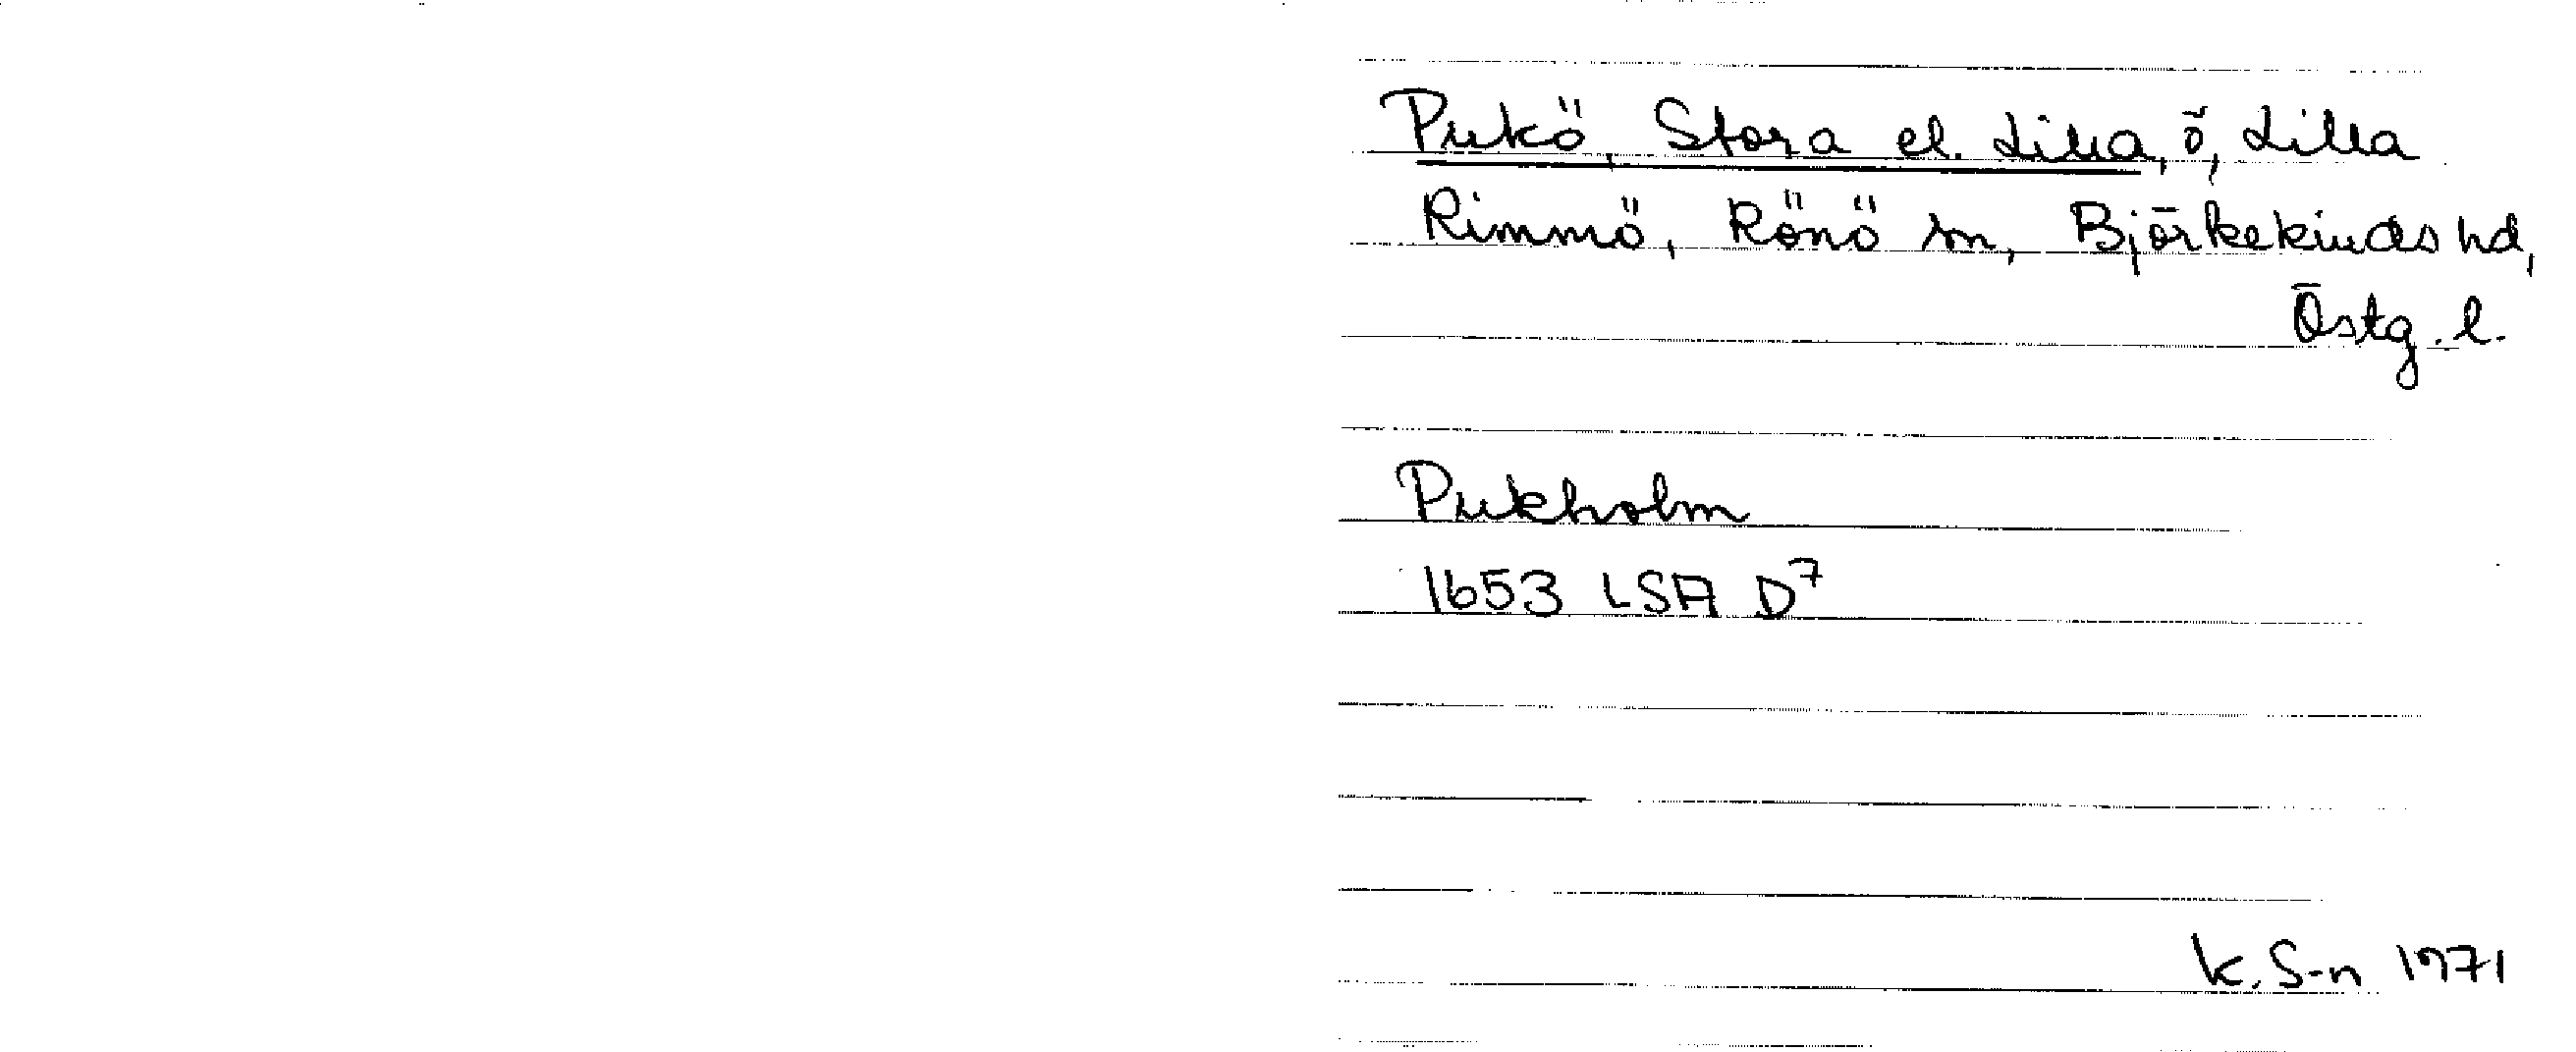 Pukö, Stora el. Lilla, ö, Lilla
Rimmö, Rönö sn, Björkekinds hd,
Östg. l.
Pukholm
1653 LSA D7
K. S-n 1971